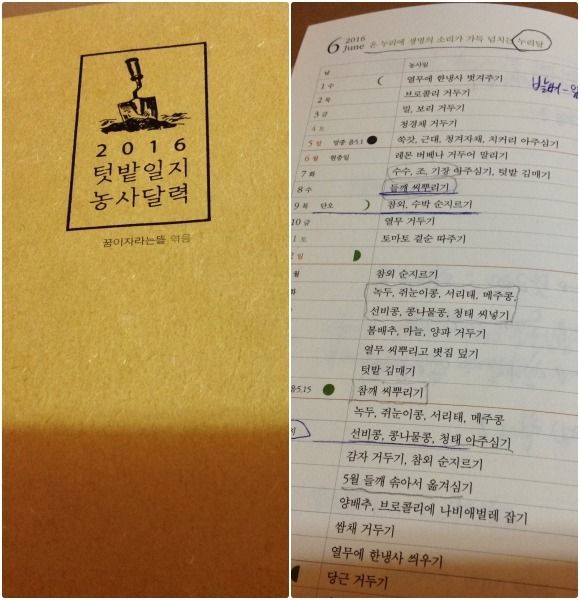 2016
텃밭일지
농사달력
꿈이자라는뜰 엮음
6 2016 June 온 누리에 생명의 소리가 가득 넘치는 누리달
날 농사일
1 수 열무에 한냉사 벗겨주기
2 목 브로콜리 거두기
3 금 밀, 보리 거두기
4 토 청경채 거두기
5 일 망종 음5.1 쑥갓, 근대, 청겨자채, 치커리 아주심기
6 월 현충일 레몬 버베나 거두어 말리기
7 화 수수, 조, 기장 아주심기, 텃밭 김매기
8 수 들깨 씨뿌리기
9 목 단오 참외, 수박 순지르기
10 금 열무 거두기
1 토 토마토 곁순 따주기
2 일
월 참외 순지르기
화 녹두, 쥐눈이콩, 서리태, 메주콩,
선비콩, 콩나물콩, 청태 씨넣기
봄배추, 마늘, 양파 거두기
열무 씨뿌리고 볏짚 덮기
텃밭 김매기
음5.15 참깨 씨뿌리기
녹두, 쥐눈이콩, 서리태, 메주콩
선비콩, 콩나물콩, 청태 아주심기
감자 거두기, 참외 순지르기
5월 들깨 솎아서 옮겨심기
양배추, 브로콜리에 나비애벌레 잡기
쌈채 거두기
열무에 한냉사 씌우기
당근 거두기